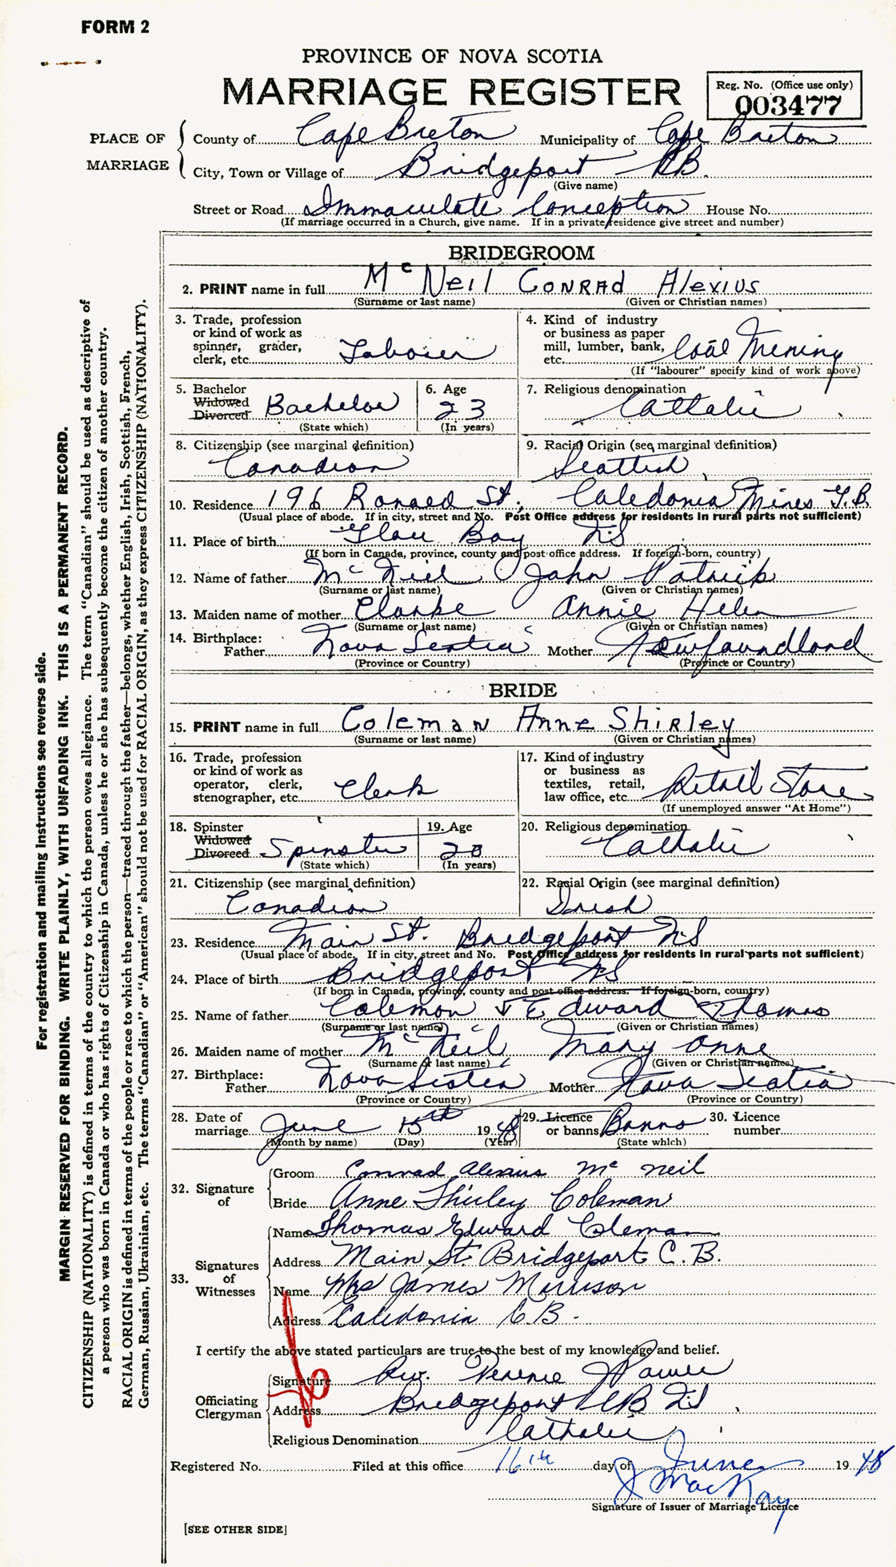 FORM 2
PROVINCE OF NOVA SCOTIA
MARRIAGE REGISTER
Reg. No. (Office use only)
003477
PLACE OF MARRIAGE
County of Cape Breton Municipality of Cape Breton
City, Town or Village of Bridgeport CB.
(Give name)
Street or Road Immaculate Conception House No.
(If marriage occurred in a Church, give name. If in a private residence give street and number)
BRIDEGROOM
2. PRINT name in full McNeil Conrad Alexius
(Surname or last name) (Given or Christian names)
3. Trade, profession or kind of work as spinner, grader, clerk, etc. Laborer
4. Kind of industry or business as paper mill, lumber, bank, etc. Coal Mining
(If "labourer" specify kind of work above)
5. Bachelor Widowed Divorced Bachelor
(State which)
6. Age 23
(In years)
7. Religious denomination Catholic
8. Citizenship (see marginal definition) Canadian
9. Racial Origin (see marginal definition) Scottish
10. Residence 196 Ronald St. Caledonia Mines G.B
(Usual place of abode. If in city, street and No. Post Office address for residents in rural parts not sufficient)
11. Place of birth Glace Bay NS
(If born in Canada, province, county and post-office address. If foreign-born, country)
12. Name of father McNeil John Patrick
(Surname or last name) (Given or Christian names)
13. Maiden name of mother Clarke Annie Helen
(Surname or last name) (Given or Christian names)
14. Birthplace: Father Nova Scotia Mother Newfoundland
(Province or Country) (Province or Country)
BRIDE
15. PRINT name in full Coleman Anne Shirley
(Surname or last name) (Given or Christian names)
16. Trade, profession or kind of work as operator, clerk, stenographer, etc. Clerk
17. Kind of industry or business as textiles, retail, law office, etc. Retail Store
(If unemployed answer "At Home")
18. Spinster Widowed Divorced Spinster
(State which)
19. Age 20
(In years)
20. Religious denomination Catholic
21. Citizenship (see marginal definition) Canadian
22. Racial Origin (see marginal definition) Irish
23. Residence Main St. Bridgeport NS
(Usual place of abode. If in city, street and No. Post Office address for residents in rural parts not sufficient)
24. Place of birth Bridgeport NS
(If born in Canada, province, county and post-office address. If foreign-born, country)
25. Name of father Coleman Edward Thomas
(Surname or last name) (Given or Christian names)
26. Maiden name of mother McNeil Mary Anne
(Surname or last name) (Given or Christian names)
27. Birthplace: Father Nova Scotia Mother Nova Scotia
(Province or Country) (Province or Country)
28. Date of marriage June 15th 1948
(Month by name) (Day) (Year)
29. Licence or banns Banns
(State which)
30. Licence number
32. Signature of
Groom Conrad Alexius McNeil
Bride Anne Shirley Coleman
33. Signatures of Witnesses
Name Thomas Edward Coleman
Address Main St. Bridgeport C.B.
Name Mrs James Morrison
Address Caledonia C.B.
I certify the above stated particulars are true to the best of my knowledge and belief.
Officiating Clergyman
Signature Rev. Terence J Power
Address Bridgeport CB NS
Religious Denomination Catholic
Registered No. Filed at this office 16th day of June 1948
J MacKay
Signature of Issuer of Marriage Licence
[SEE OTHER SIDE]
For registration and mailing instructions see reverse side.
MARGIN RESERVED FOR BINDING. WRITE PLAINLY, WITH UNFADING INK. THIS IS A PERMANENT RECORD.
CITIZENSHIP (NATIONALITY) is defined in terms of the country to which the person owes allegiance. The term "Canadian" should be used as descriptive of
a person who was born in Canada or who has rights of Citizenship in Canada, unless he or she has subsequently become the citizen of another country.
RACIAL ORIGIN is defined in terms of the people or race to which the person—traced through the father—belongs, whether English, Irish, Scottish, French,
German, Russian, Ukrainian, etc. The terms "Canadian" or "American" should not be used for RACIAL ORIGIN, as they express CITIZENSHIP (NATIONALITY).